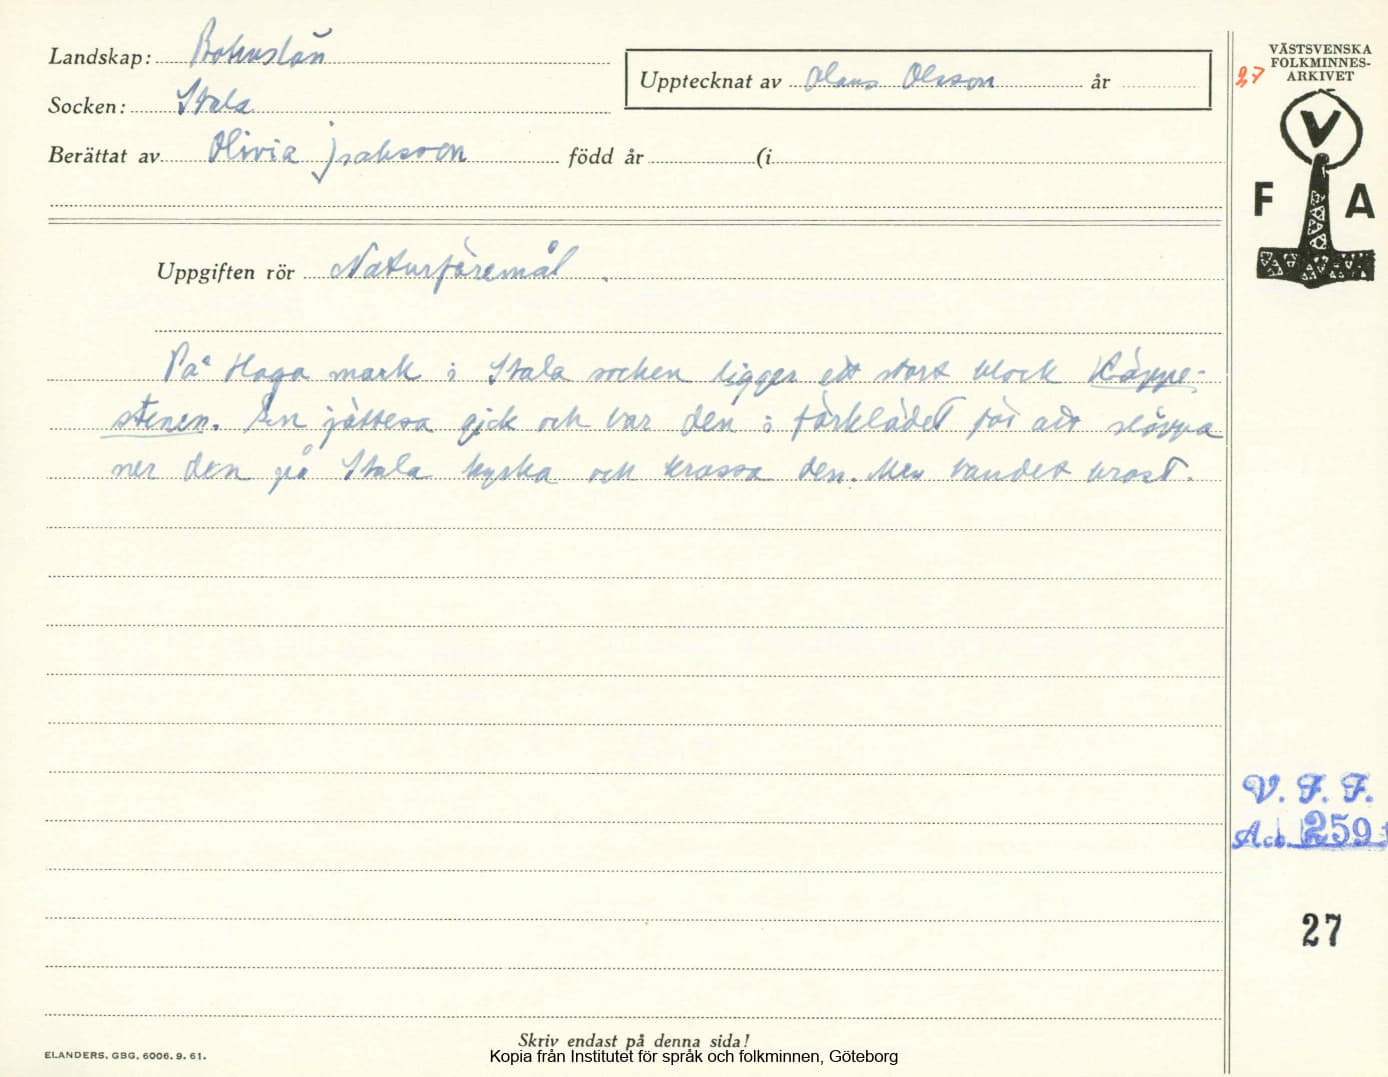 Landskap: Bohuslän
Socken: Stala
Upptecknat av Olaus Olsson år
Berättat av Olivia Isaksson född år (i
Uppgiften rör Naturföremål.
På Haga mark i Stala socken ligger ett stort block Käppe-
stenen. En jättesa gick och bar den i förklädet för att släppa
ner den på Stala kyrka och krossa den. Men bandet brast.
Skriv endast på denna sida!
Kopia från Institutet för språk och folkminnen, Göteborg
ELANDERS, GBG, 6006. 9. 61.
27
VÄSTSVENSKA
FOLKMINNES-
ARKIVET
V
F A
V. F. F.
Acc. 259
27